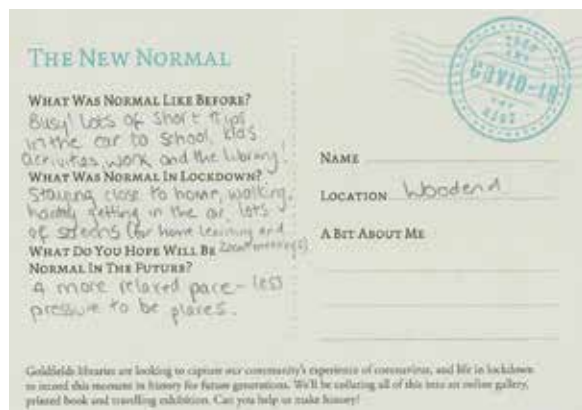 THE NEW NORMAL
WHAT WAS NORMAL LIKE BEFORE?
Busy! Lots of short trips
in the car to school, kids
activities, work and the library!
WHAT WAS NORMAL IN LOCKDOWN?
Staying close to home, walking,
hardly getting in the car, lots
of screens (for home learning and
Zoom meetings)
WHAT DO YOU HOPE WILL BE
NORMAL IN THE FUTURE?
A more relaxed pace - less
pressure to be places.
COVID-19
NAME
LOCATION Woodend
A BIT ABOUT ME
Goldfields libraries are looking to capture our community's experience of coronavirus, and life in lockdown
to record this moment in history for future generations. We'll be collating all of this into an online gallery,
printed book and travelling exhibition. Can you help us make history?